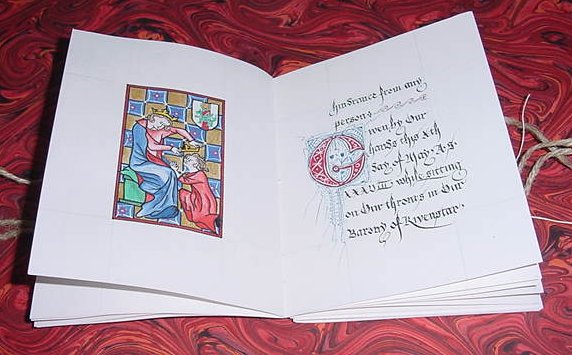 hindrance from any
person.
Given by Our
hands this Xth
day of May A.S.
XXXVIII while sitting
on Our thrones in Our
Barony of Rivenstar.